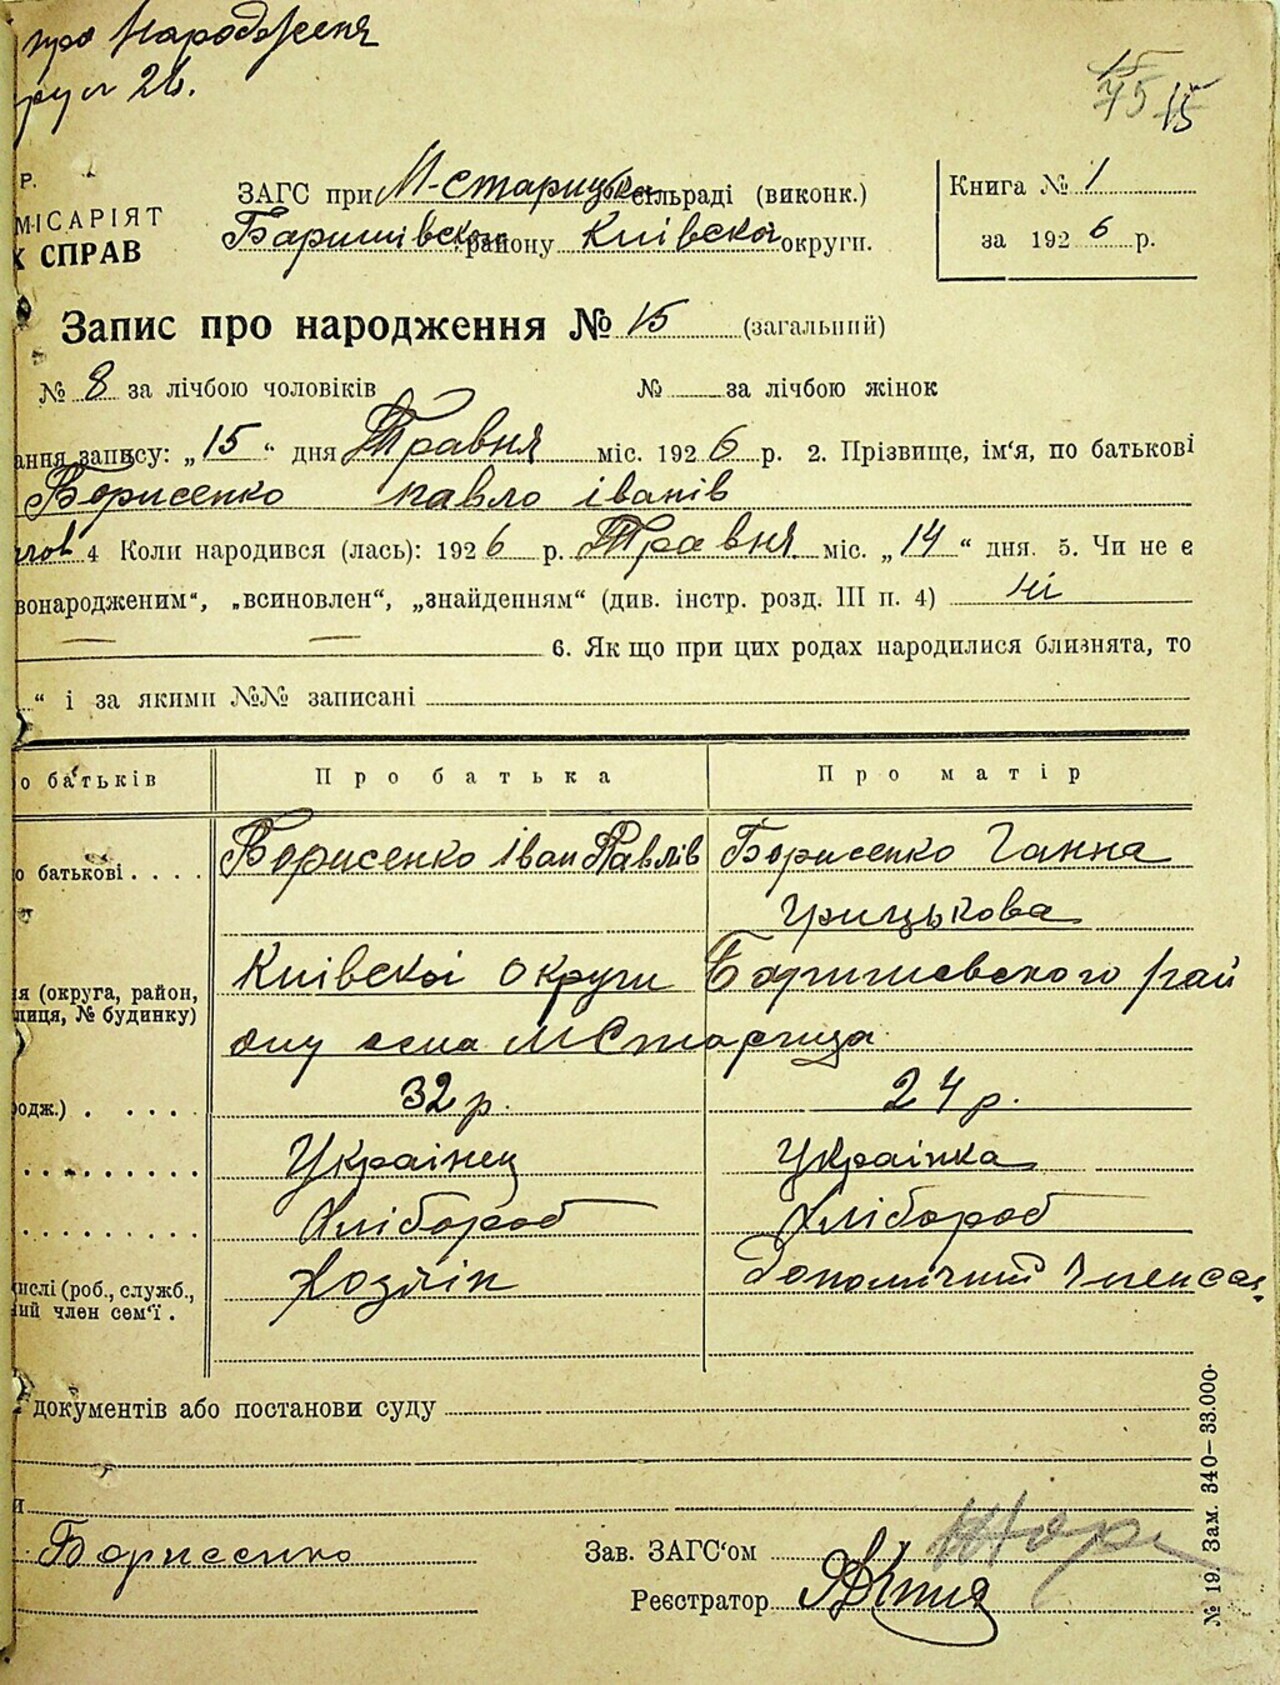 про Народження
15
75 15
Р.
МІСАРІЯТ
Х СПРАВ
ЗАГС при М-Старицьк сільраді (виконк.)
Баришівско району Київскої округи.
Книга № 1
за 1926 р.
Запис про народження № 15 (загальний)
№ 8 за лічбою чоловіків № за лічбою жінок
ання запису: „15“ дня Травня міс. 1926 р. 2. Прізвище, ім‘я, по батькові
Борисенко павло іванів
чолов 4 Коли народився (лась): 1926 р. Травня міс. „14“ дня. 5. Чи не є
вонародженим“, „всиновлен“, „знайденням“ (див. інстр. розд. III п. 4) ні
6. Як що при цих родах народилися близнята, то
“ і за якими №№ записані
о батьків Про батька Про матір
о батькові . . . . Борисенко Іван Павлів Борисенко Ганна
Грицькова
я (округа, район, Київскої округи Баришевского рай
лиця, № будинку)
ону села МСтариця
одж.) . . . . . 32 р. 24 р.
Українец Українка
Хлібороб Хлібороб
ислі (роб., служб., Хозяїн Допомічний Член
ий член сем‘ї .
документів або постанови суду
и
Борисенко Зав. ЗАГС‘ом
Реєстратор
№ 19. Зам. 340—33.000.